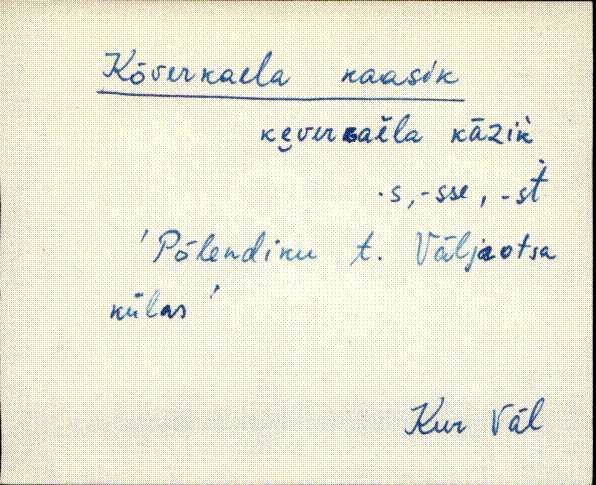 Kõverkaela kaasik
ke̮verkaĕla kāzik̀
-s, -sse, -st̀
'Põlendiku t. Väljaotsa
külas'
Kur Väl